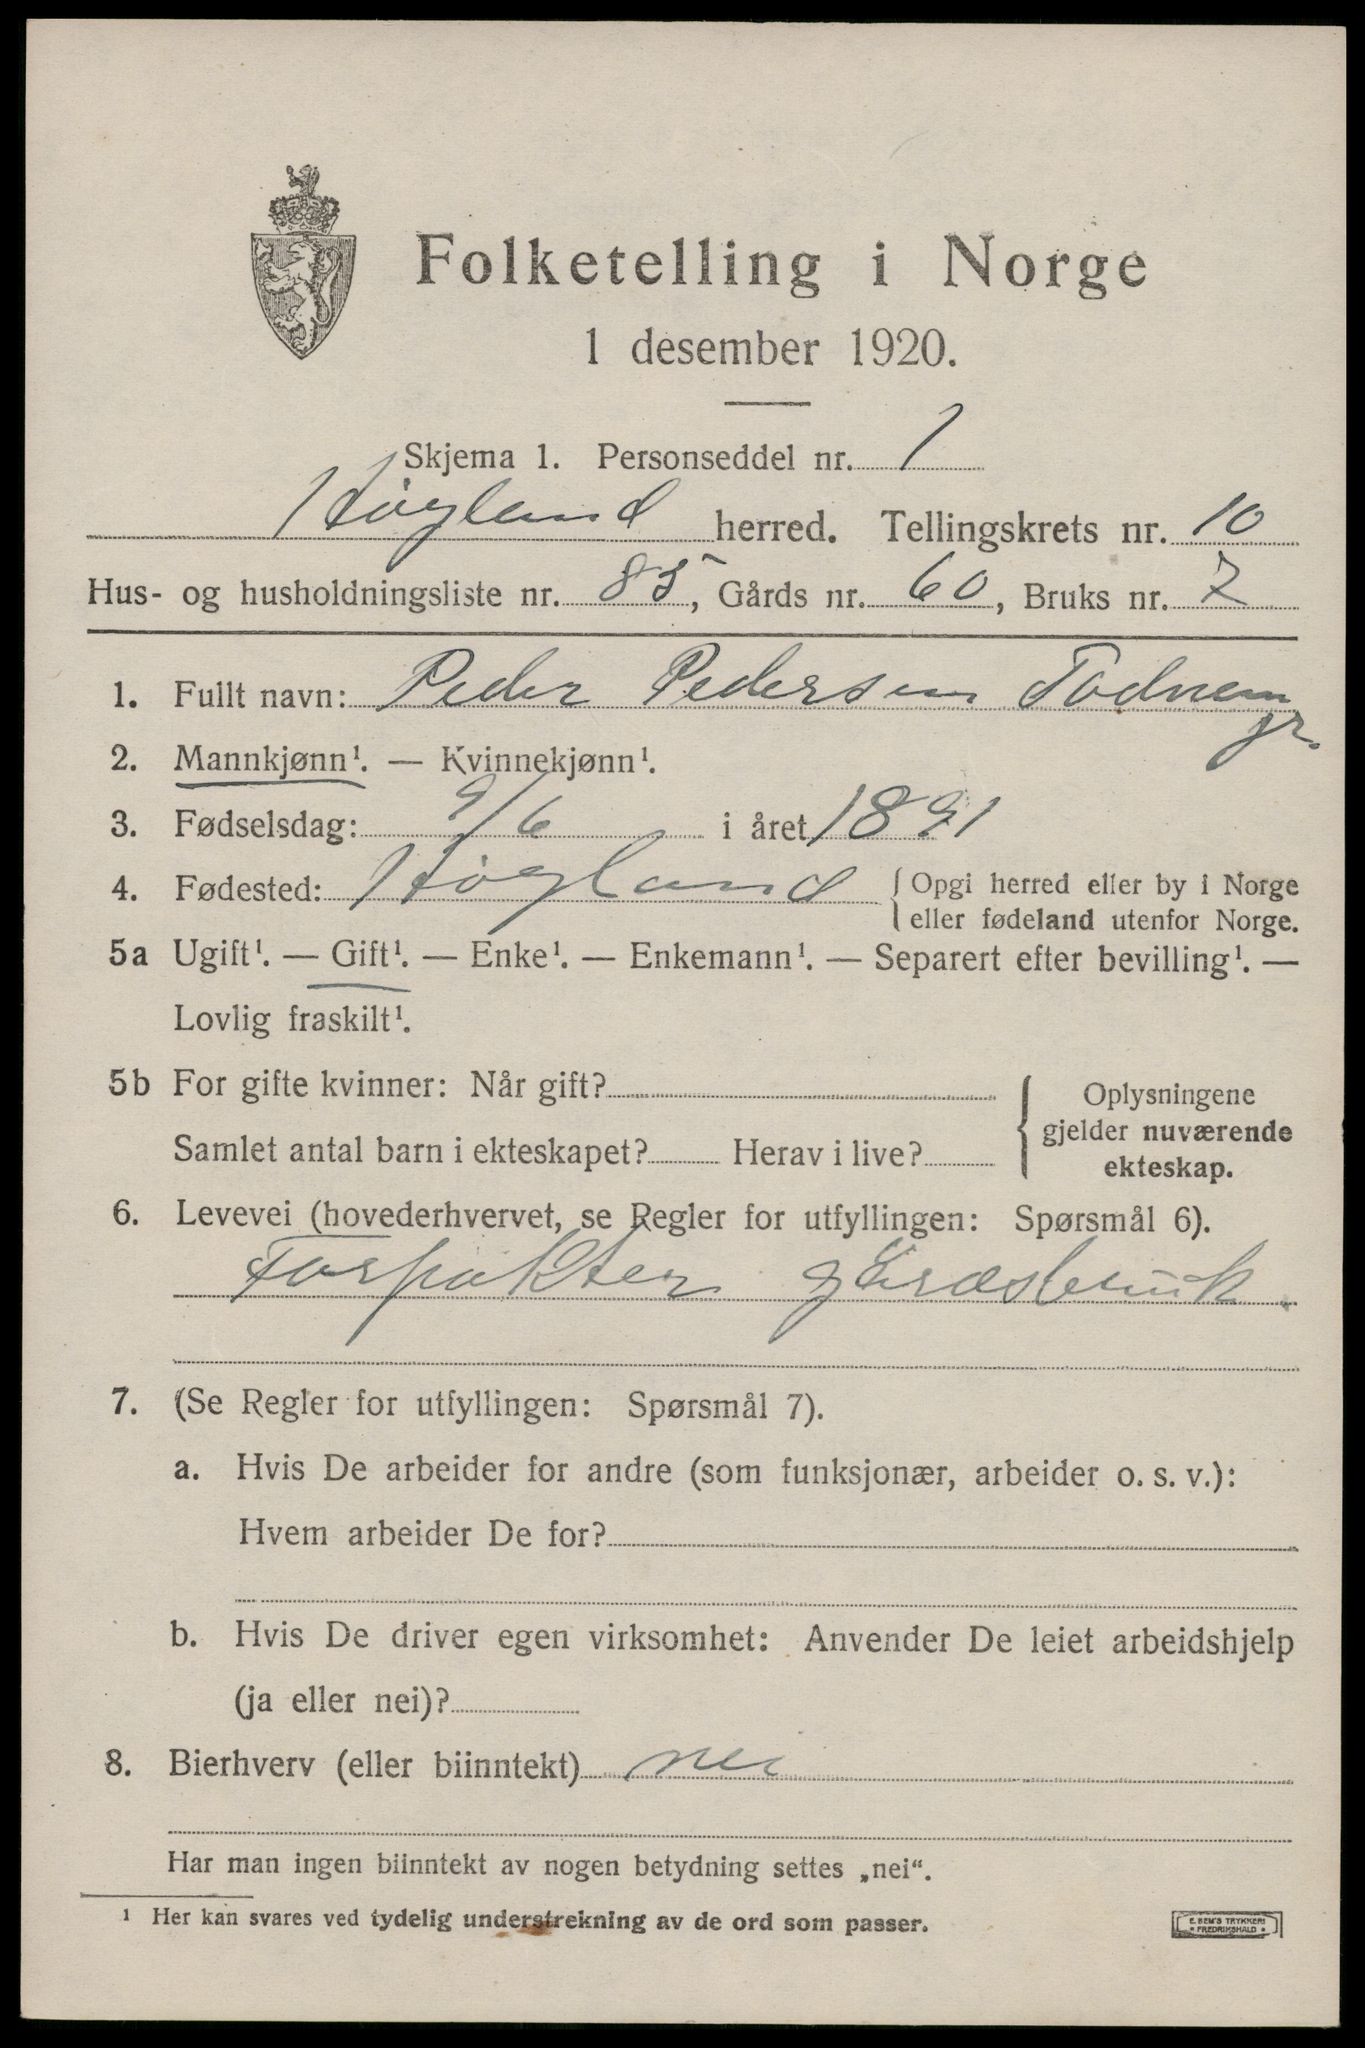 Folketelling i Norge
1 desember 1920.
Skjema 1. Personseddel nr. 1
Høyland herred. Tellingskrets nr. 10
Hus- og husholdningsliste nr. 85, Gårds nr. 60, Bruks nr. 7
1. Fullt navn: Peder Pedersen Todnem
jr.
2. Mannkjønn¹. — Kvinnekjønn¹.
3. Fødselsdag: 9/6 i året 1891
4. Fødested: Høyland { Opgi herred eller by i Norge
eller fødeland utenfor Norge.
5a Ugift¹. — Gift¹. — Enke¹. — Enkemann¹. — Separert efter bevilling¹. —
Lovlig fraskilt¹.
5b For gifte kvinner: Når gift?
Samlet antal barn i ekteskapet? Herav i live?
{ Oplysningene
gjelder nuværende
ekteskap.
6. Levevei (hovederhvervet, se Regler for utfyllingen: Spørsmål 6).
Forpakter gårdsbruk.
7. (Se Regler for utfyllingen: Spørsmål 7).
a. Hvis De arbeider for andre (som funksjonær, arbeider o. s. v.):
Hvem arbeider De for?
b. Hvis De driver egen virksomhet: Anvender De leiet arbeidshjelp
(ja eller nei)?
8. Bierhverv (eller biinntekt) nei
Har man ingen biinntekt av nogen betydning settes „nei“.
¹ Her kan svares ved tydelig understrekning av de ord som passer.
E. SEM'S TRYKKERI
• FREDRIKSHALD •